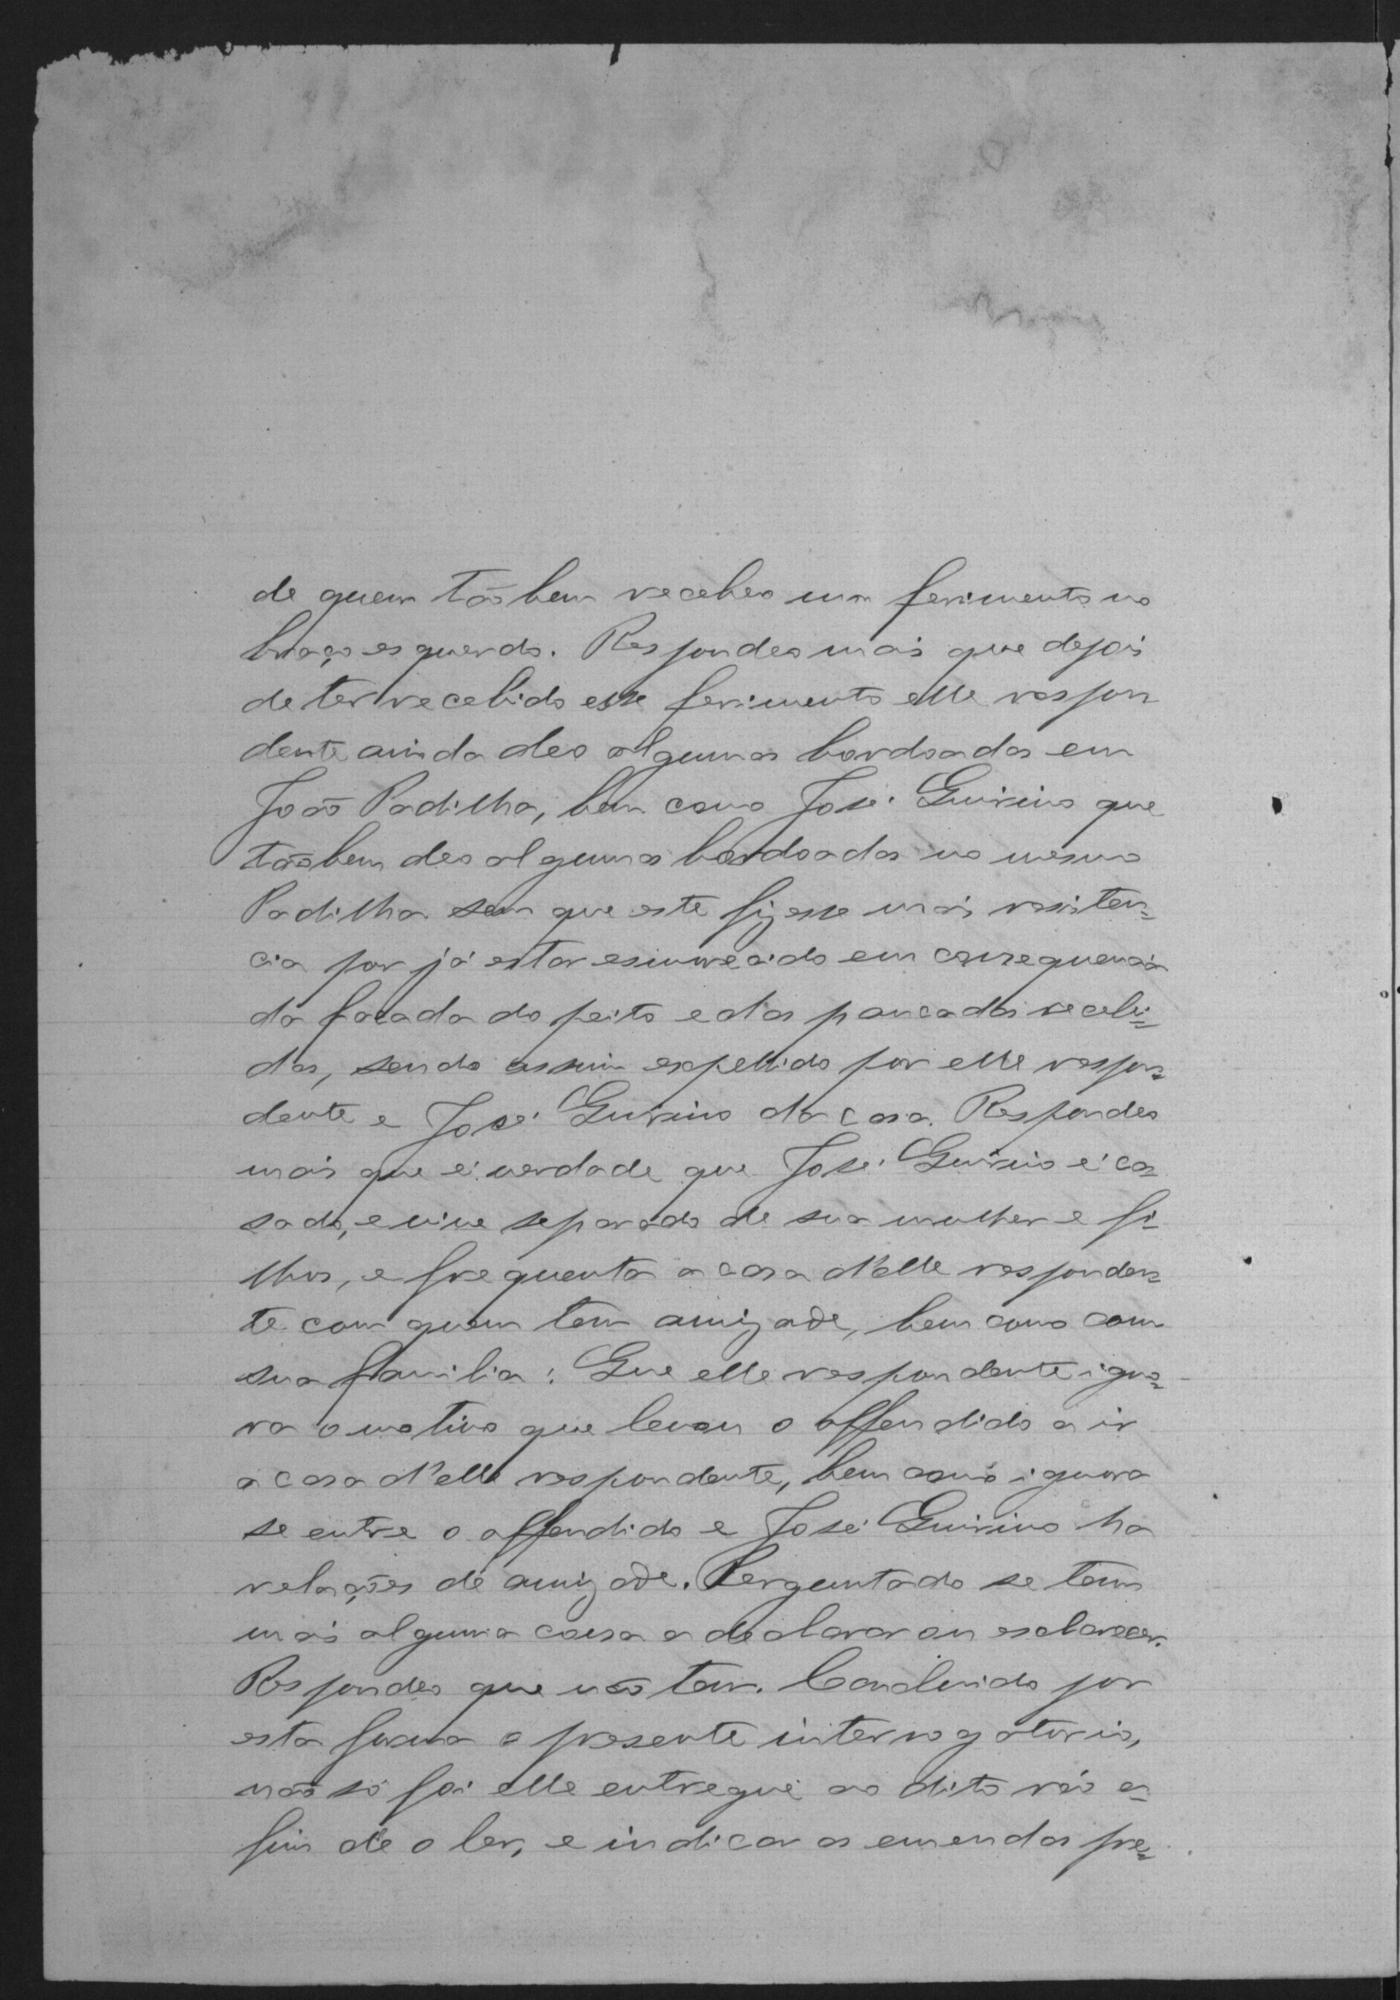 de quem tãobem recebeo um ferimento no
braço esquerdo. Respondeo mais que depois
de ter recebido esse ferimento elle respon
dente ainda deo algumas bordoadas em
João Padilha, bem como José Quirino que
tãobem deo algumas bordoadas no mesmo
Padilha sem que este fizesse mais resisten=
cia por já estar esmorecido em consequencia
da facada do peito e das pancadas recebi=
das, sendo assim expellido por elle respon=
dente e José Quirino da casa. Respondeo
mais que é verdade que José Quirino é ca=
sado, e vive separado de sua mulher e fi=
lhos, e frequenta a casa d'elle responden=
te com quem tem amizade, bem como com
sua familia: Que elle respondente igno=
ra o motivo que levou o offendido a ir
a casa d'elle respondente, bem como ignora
se entre o offendido e José Quirino ha
relações de amizade. Perguntado se tem
mais alguma cousa a declarar ou esclarecer.
Respondeo que não tem. Concluido por
esta forma o presente interrogatorio,
não só foi elle entregue ao dito réo a=
fim de o ler, e indicar as emendas pre=